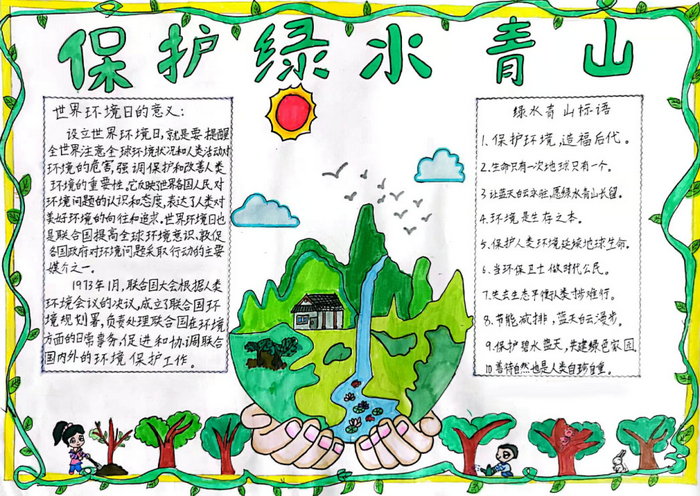 保护绿水青山
世界环境日的意义：
设立世界环境日，就是要提醒
全世界注意全球环境状况和人类活动对
环境的危害，强调保护和改善人类
环境的重要性。它反映世界各国人民对
环境问题的认识和态度，表达了人类对
美好环境的向往和追求。世界环境日也
是联合国提高全球环境意识，敦促
各国政府对环境问题采取行动的主要
媒介之一。
1973年1月，联合国大会根据人类
环境会议的决议，成立了联合国环
境规划署，负责处理联合国在环境
方面的日常事务，促进和协调联合
国内外的环境保护工作。
绿水青山标语
1.保护环境，造福后代。
2.生命只有一次地球只有一个。
3.让蓝天白云永驻，愿绿水青山长留。
4.环境是生存之本。
5.保护人类环境延续地球生命。
6.当环保卫士做时代公民。
7.失去生态平衡人类寸步难行。
8.节能减排，蓝天白云漫步。
9.保护碧水蓝天，共建绿色家园
10.善待自然也是人类自珍自重。